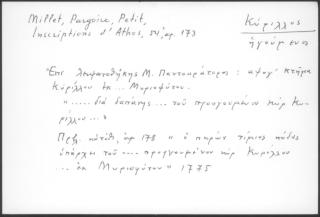 Millet, Pargoire, Petit,
Inscriptions d'Athos, 54, ἀρ. 173
Κύριλλος
ἡγούμενος
Ἐπὶ λειψανοθήκης Μ. Παντοκράτορος : κτῆμα
Κύριλλου ἐκ ... Μυριοφύτου.
" ..... διὰ δαπάνης ... τοῦ προηγουμένου κὺρ Κυ-
ρίλλου ... "
Πρβλ. αὐτόθι, ἀρ 178 " ὁ παρὼν τίμιος
ὑπάρχει τοῦ .... προηγουμένου κὺρ Κυρίλλου
... ἐκ Μυριοφύτου" 1775